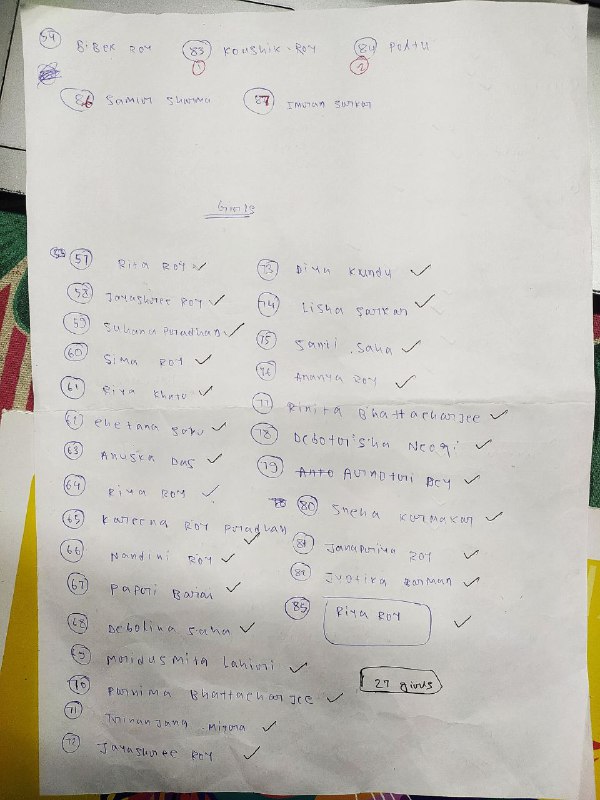 54 BiBEK ROY 83 KOUSHIK. ROY 84 POLTU
1 2
86 Samir Sharma 87 Imran Sarkar
Girls
57 Rita ROY
58 Jayashree ROY
59 Suhana Pradhan
60 Sima ROY
61 Riya Khatu
62 Chetana Sahu
63 Anuska Das
64 Riya ROY
65 Kareena ROY Pradhan
66 Nandini ROY
67 Papri Barai
68 Debolina Saha
69 Moridusmita Lahiri
70 Purnima Bhattacharjee
71 Trinanjana .Mitra
72 Jayashree ROY
73 Diya Kundu
74 Lisha Sarkar
75 Sanvi .Saha
76 Ananya ROY
77 Rinita Bhattacharjee
78 Debotrisha Neogi
79 Dey
80 Sneha Karmakar
81 Janapriya ROY
82 Jyotika Barman
85 Riya ROY
27 girls